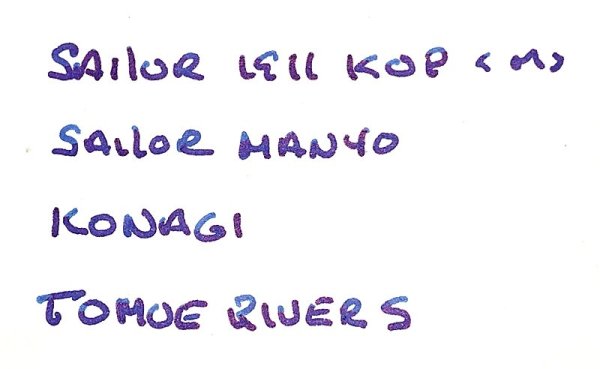 SAILOR 1911 KOP <M>
SAILOR MANYO
KONAGI
TOMOE RIVER S